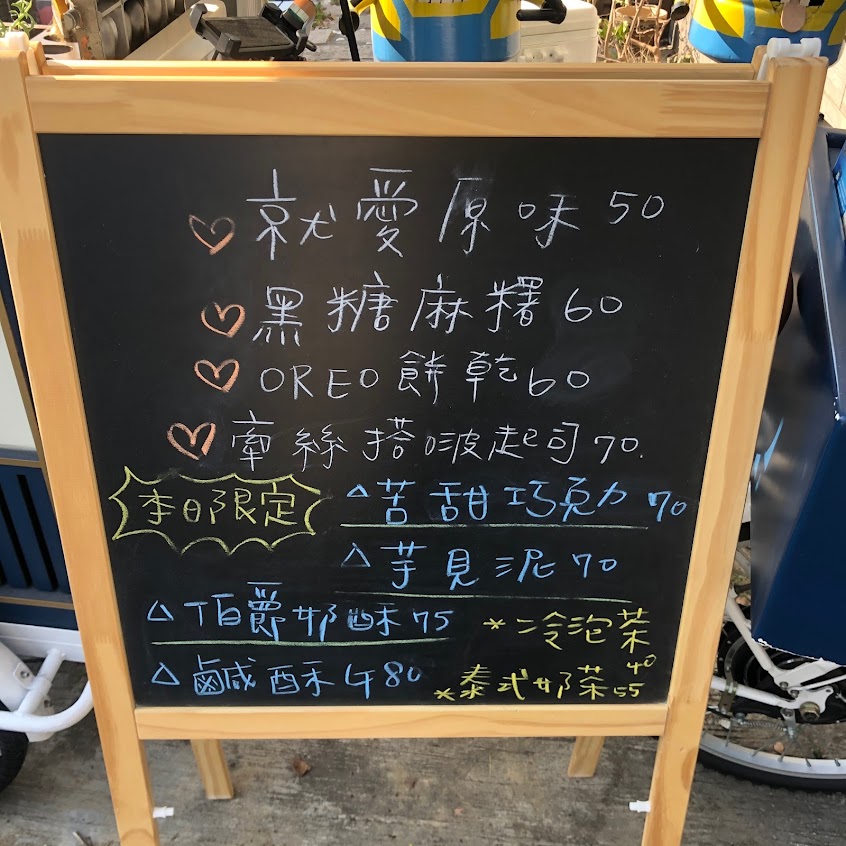 就愛原味 50
黑糖麻糬 60
OREO餅乾 60
牽絲搭啵起司 70.
本日限定
△苦甜巧克力 70
△芋見泥 70
△伯爵奶酥 75
△鹹酥ㄐ 80
*冷泡茶 40
*泰式奶茶 55